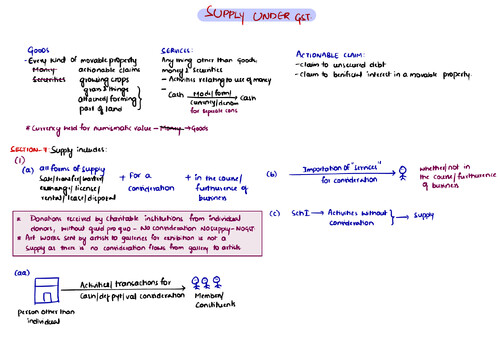 SUPPLY UNDER GST
GOODS
- Every kind of movable property
Money actionable claims
Securities growing crops
grass & things
attached/forming
part of land
SERVICES:
Anything other than goods,
money & securities
- Activities relating to use of money
- Cash Mode/form/ Cash
currency/denom
for separate cons
ACTIONABLE CLAIM:
- claim to unsecured debt
- claim to benificial interest in a movable property.
* Currency held for numismatic value - Money → Goods
SECTION-7 Supply includes:
(1)
(a) all forms of supply + For a + in the course/
Sale/transfer/barter/ consideration furtherance of
exchange/license/ business
rental/lease/disposal
(b) Importation of "services" whether/not in
for consideration the course/furtherance
of business
(c) Sch I → Activities without → supply
consideration
* Donations received by charitable institutions from individual
donors, without quid pro quo - No consideration NO SUPPLY - NO GST
* Art works sent by artists to galleries for exhibition is not a
supply as there is no consideration flows from gallery to artists
(aa)
Activities/ transactions for
Cash/def pyt/val consideration
Member/
Constituents
person other than
individual